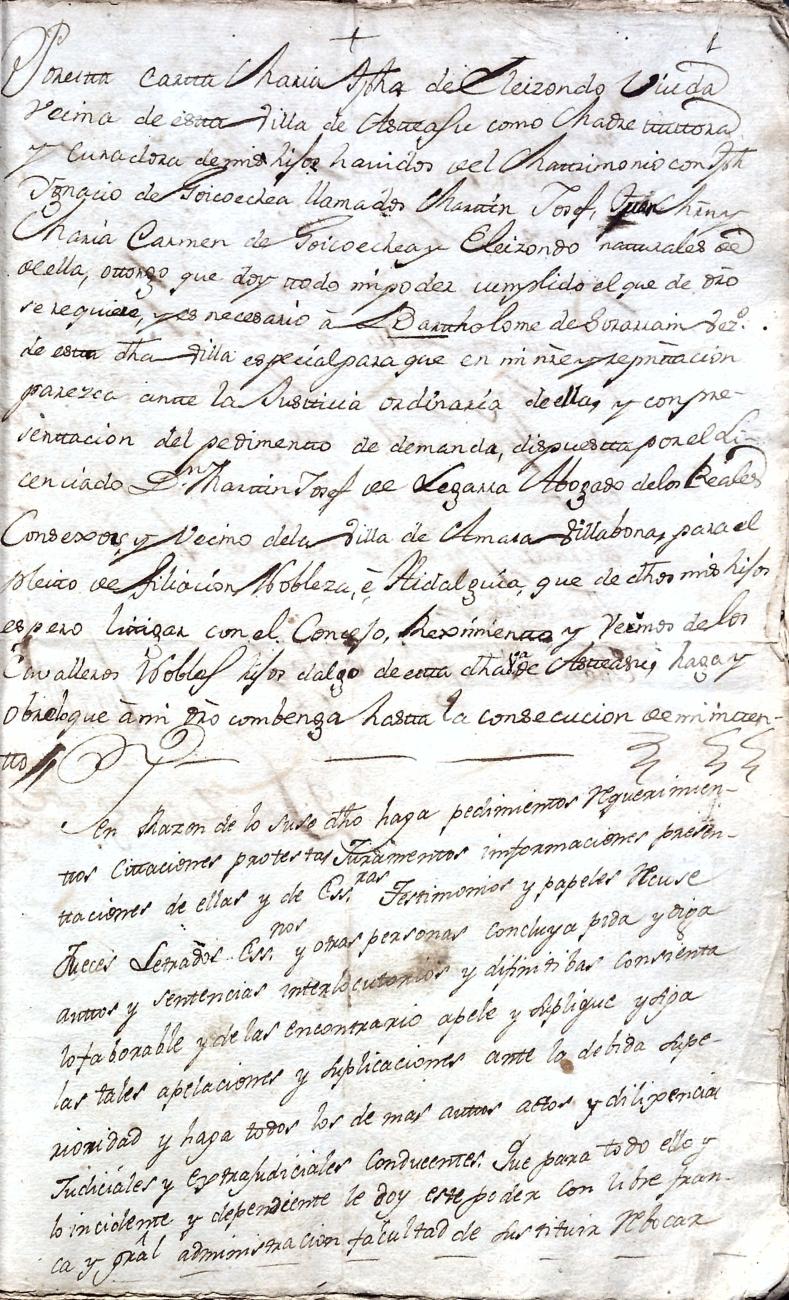 Poresta cartta Maria Jpha de Eleizondo Viuda
vecina de estta villa de Astteasu como Madre ttuttora
y curadora de mis hijos havidos de el Mattrimonio con Jph
Ignacio de Goicoechea llamados Marttin Josef, Juan y
Maria Carmen de Goicoechea y Eleizondo natturales de
de ella, ottorgo que doy ttodo mi poder cumplido el que de dro
se requiere, y es necesario à Bartholome de Sorarrain vezº.
de estta dha villa especial para que en mi nre y reprnttacion
parezca antte la Justticia ordinaria de ella, y con pre-
senttacion del pedimentto de demanda, dispuestta por el Li-
cenciado Dn. Marttin Josef de Legarra Abogado de los Reales
Consexos, y vecino de la villa de Amasa Villabona, para el
pleito de filiacion Nobleza, è Hidalguia, que de dhos mis hijos
espero litigar con el Concejo, Reximientto y Vecinos de los
Cavalleros Nobles hijos dalgo de estta dha va de Astteasu, haga y
obre lo que à mi dro combenga hastta la consecucion de mi intten-
tto
En Razon de lo suso dho haga pedimientos Requerimien-
ttos cittaciones protestas Juramentos informaciones presen-
ttaciones de ellas y de Ess.ras Testimonios y papeles Recuse
Jueces Letrados Ess.nos y otras personas concluya pida y oiga
auttos y sentencias interlocutorios y difinitibas consienta
lo faborable y de las encontrario apele y suplique y siga
las tales apelaciones y suplicaciones ante la debida supe-
rioridad y haga todos los de mas auttos actos y dilixencias
Judiciales y extrajudiciales conducentes. Que para todo ello y
lo incidente y dependiente le doy este poder con libre fran-
ca y gral administracion facultad de sustituir Rebocar